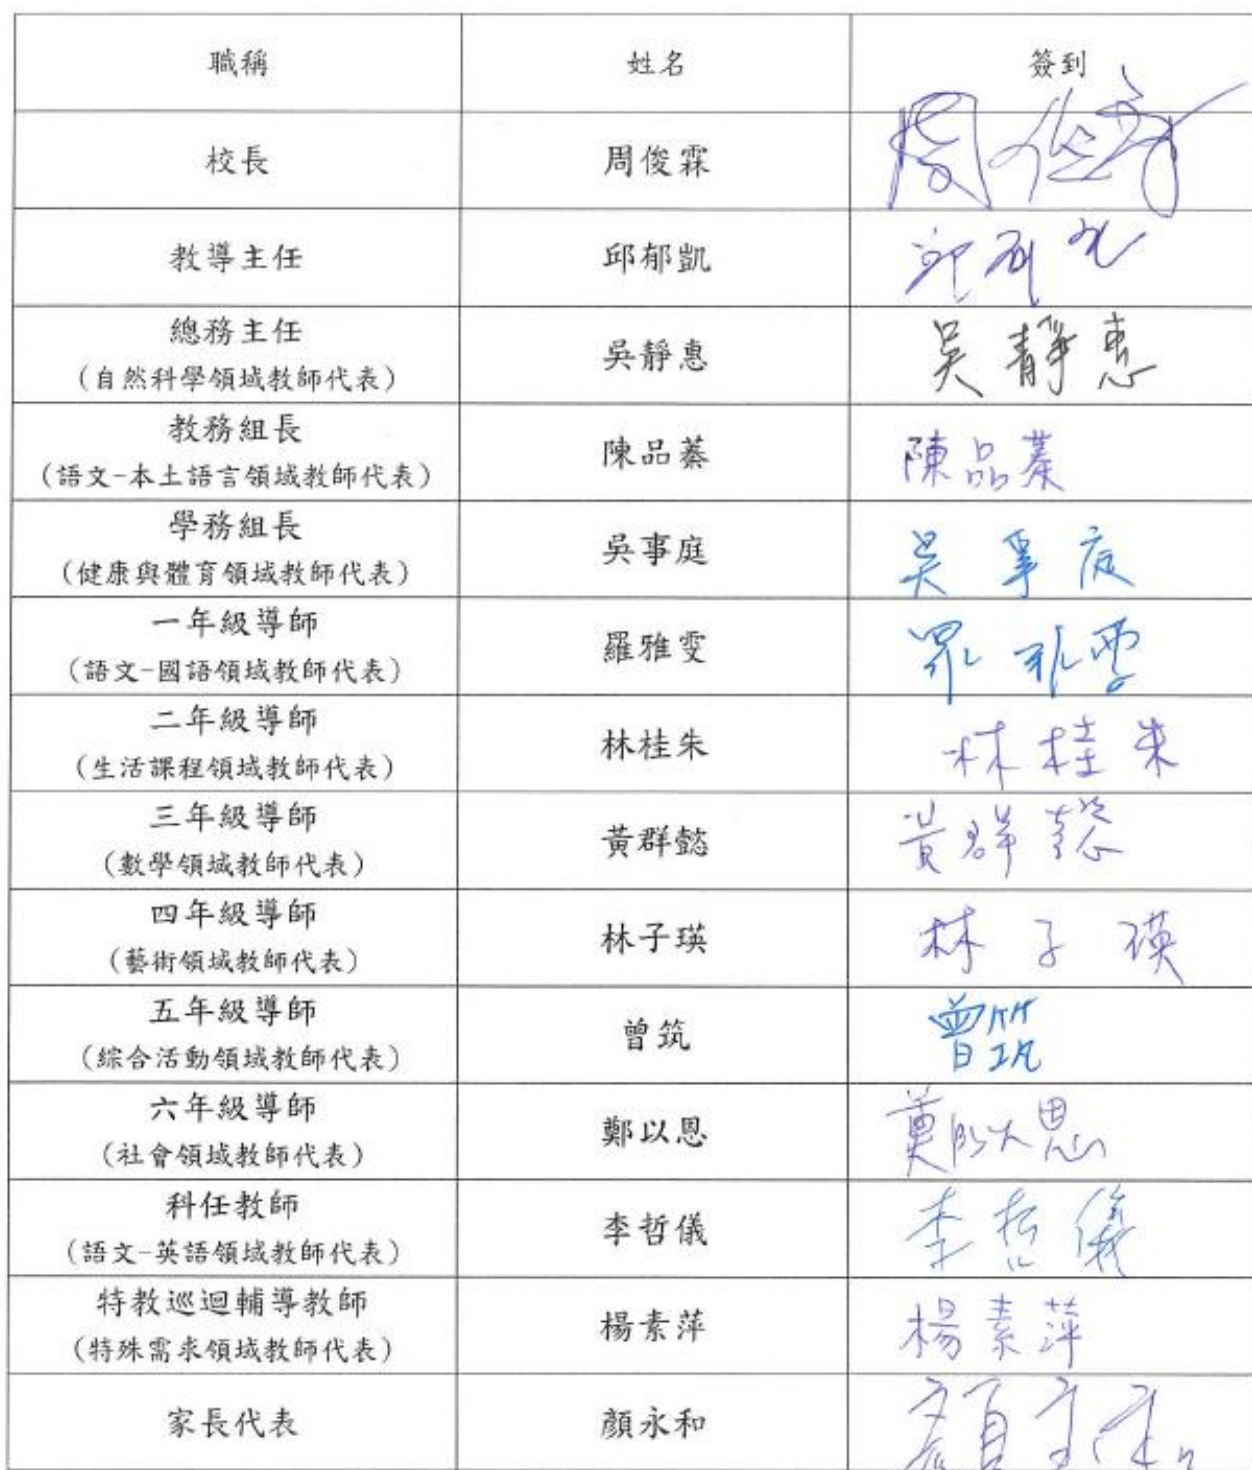 職稱 姓名 簽到
校長 周俊霖 周俊霖
教導主任 邱郁凱 邱郁凱
總務主任
(自然科學領域教師代表) 吳靜惠 吳靜惠
教務組長
(語文-本土語言領域教師代表) 陳品蓁 陳品蓁
學務組長
(健康與體育領域教師代表) 吳事庭 吳事庭
一年級導師
(語文-國語領域教師代表) 羅雅雯 羅雅雯
二年級導師
(生活課程領域教師代表) 林桂朱 林桂朱
三年級導師
(數學領域教師代表) 黃群懿 黃群懿
四年級導師
(藝術領域教師代表) 林子瑛 林子瑛
五年級導師
(綜合活動領域教師代表) 曾筑 曾筑
六年級導師
(社會領域教師代表) 鄭以恩 鄭以恩
科任教師
(語文-英語領域教師代表) 李哲儀 李哲儀
特教巡迴輔導教師
(特殊需求領域教師代表) 楊素萍 楊素萍
家長代表 顏永和